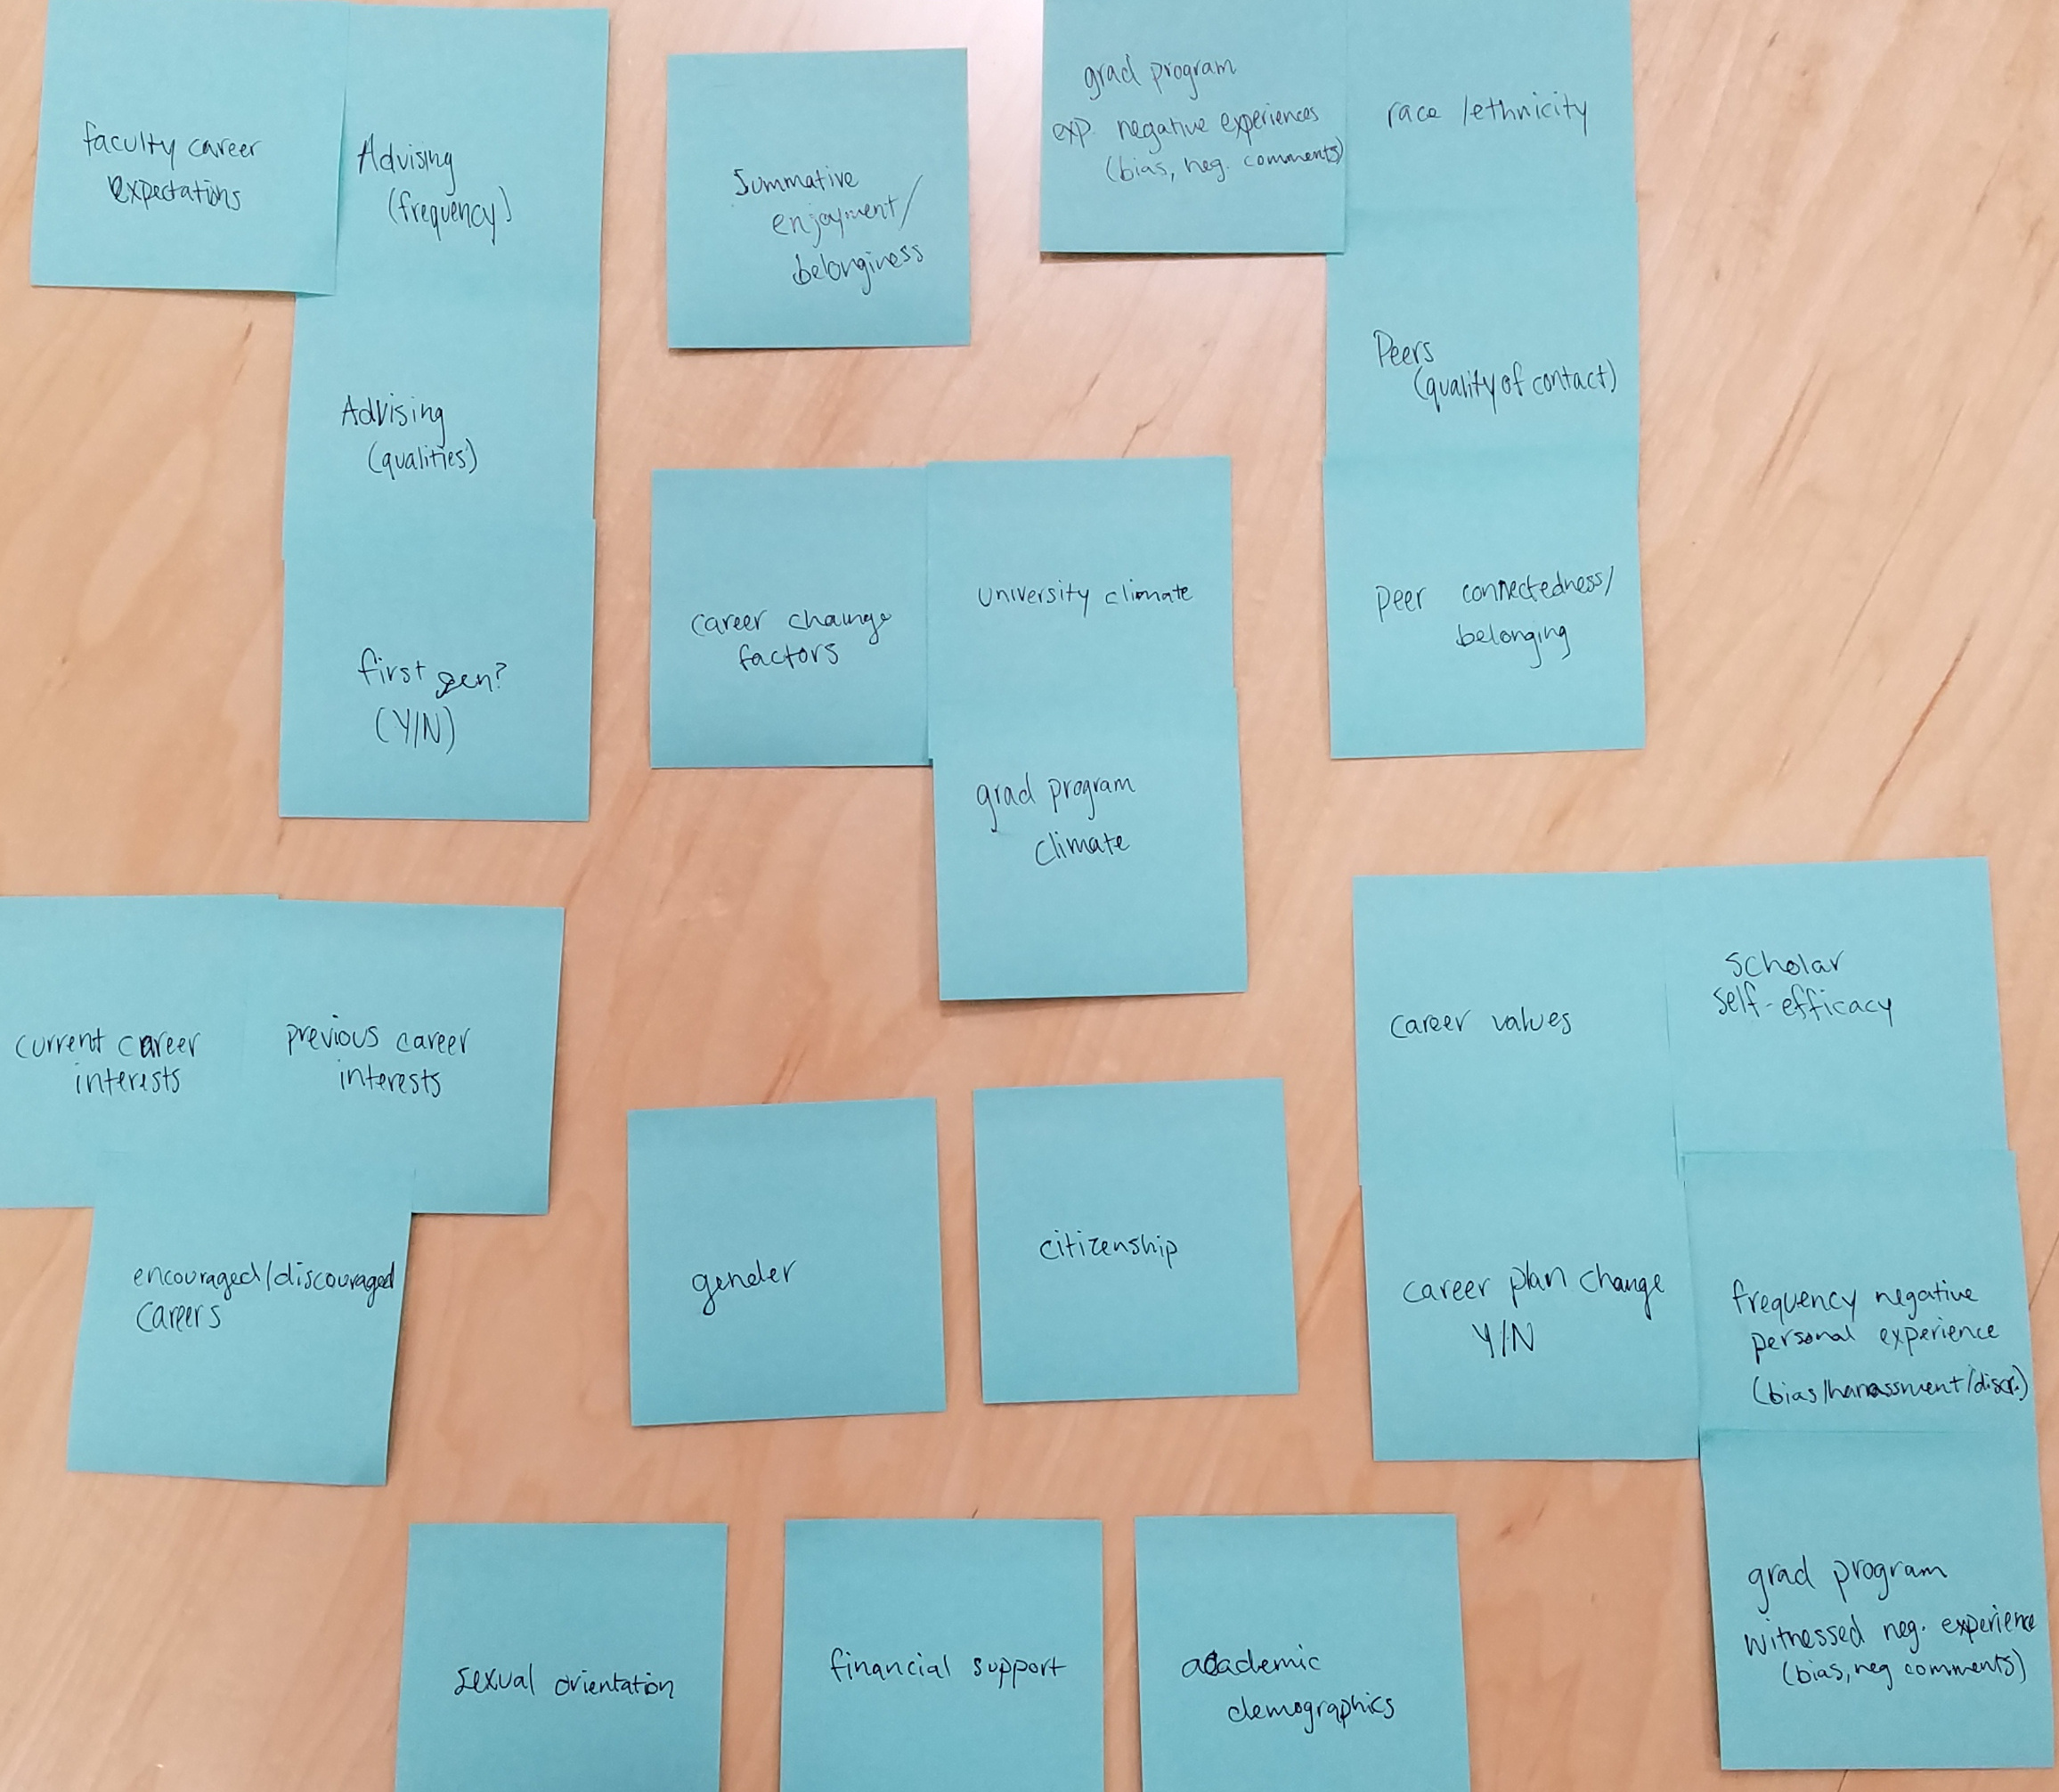 faculty career
expectations
Advising
(frequency)
Advising
(qualities)
first gen?
(Y/N)
Summative
enjoyment/
belonginess
grad program
exp. negative experiences
(bias, neg. comments)
race /ethnicity
Peers
(quality of contact)
peer connectedness/
belonging
career change
factors
university climate
grad program
climate
current career
interests
previous career
interests
encouraged/discouraged
careers
gender
citizenship
career values
scholar
self-efficacy
career plan change
Y/N
frequency negative
personal experience
(bias/harrassment/discr.)
grad program
witnessed neg. experience
(bias, neg comments)
sexual orientation
financial support
academic
demographics